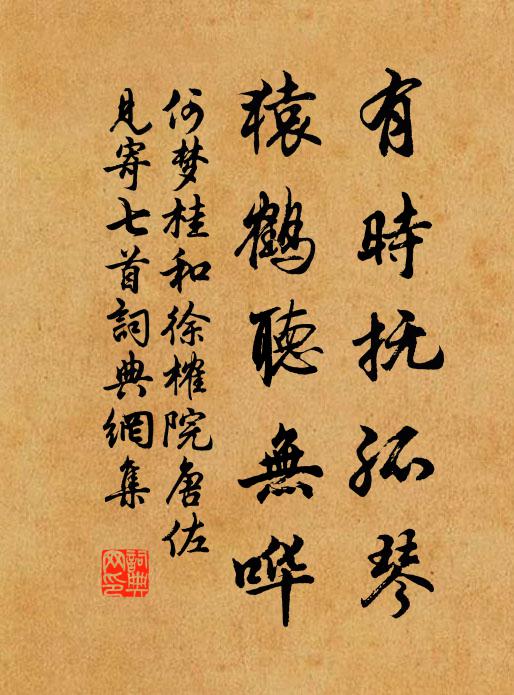 有時抚孤琴
猿鶴聽無哗
何梦桂和徐榷院唐佐
見寄七首詞典網集
詞典网印